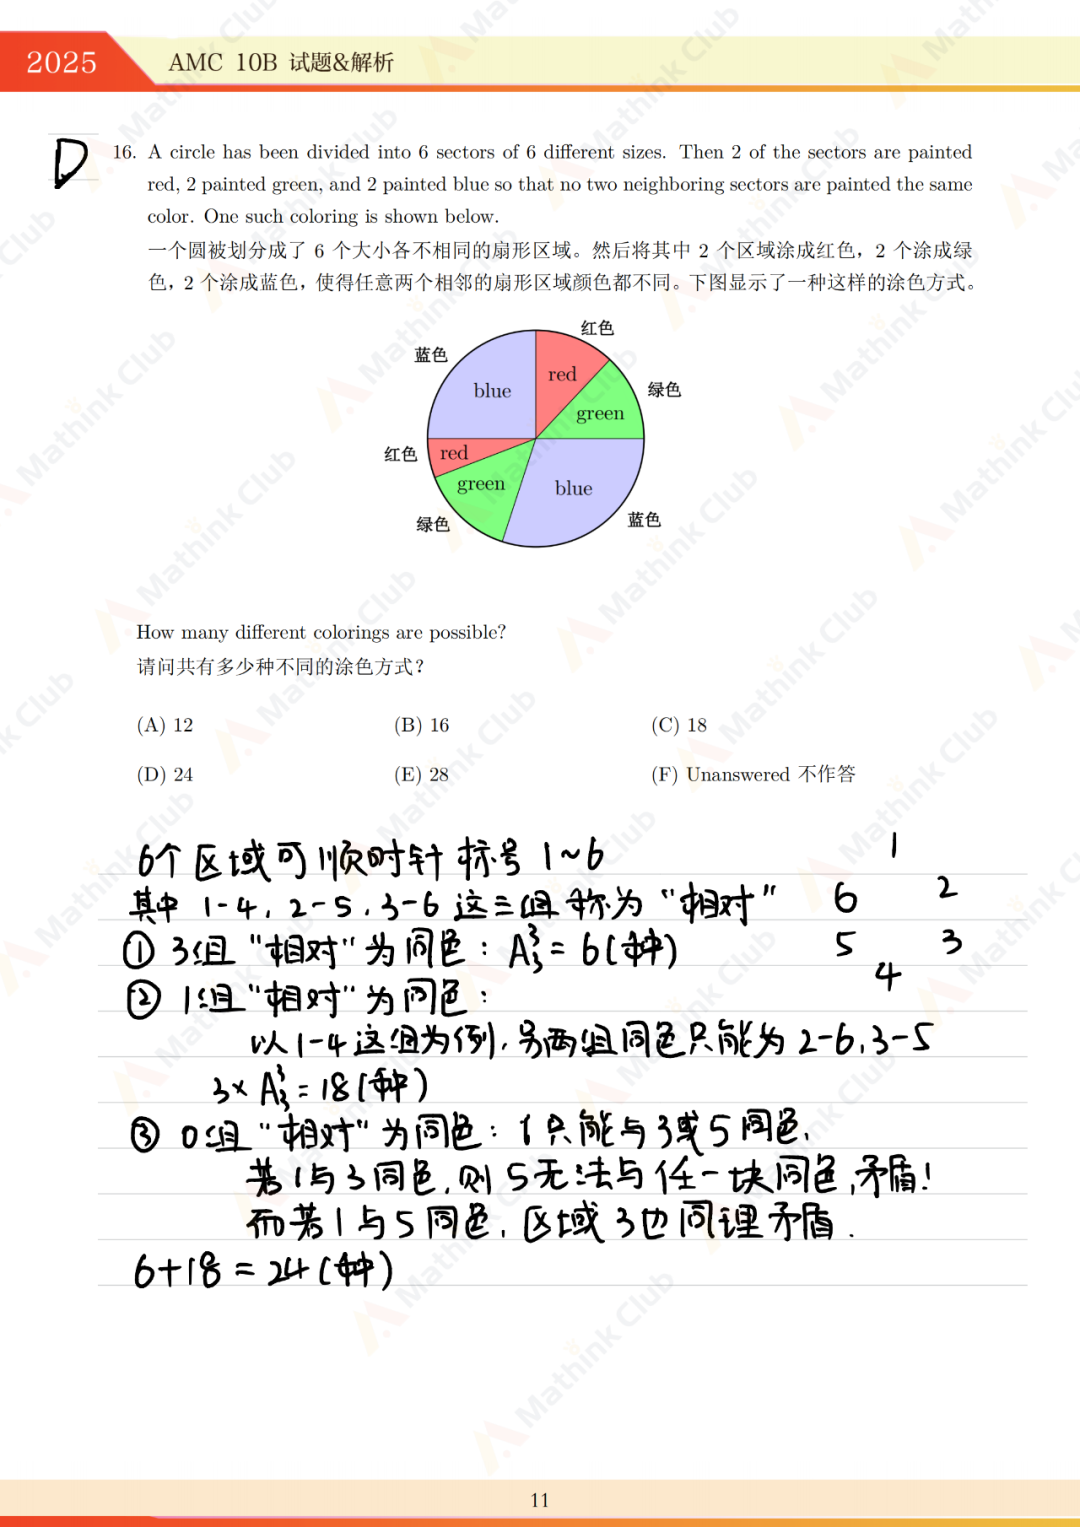 2025
AMC 10B 试题&解析
D
16. A circle has been divided into 6 sectors of 6 different sizes. Then 2 of the sectors are painted
red, 2 painted green, and 2 painted blue so that no two neighboring sectors are painted the same
color. One such coloring is shown below.
一个圆被划分成了 6 个大小各不相同的扇形区域。然后将其中 2 个区域涂成红色，2 个涂成绿
色，2 个涂成蓝色，使得任意两个相邻的扇形区域颜色都不同。下图显示了一种这样的涂色方式。
红色
蓝色
red
blue
绿色
green
红色
red
green
blue
绿色
蓝色
How many different colorings are possible?
请问共有多少种不同的涂色方式？
(A) 12
(B) 16
(C) 18
(D) 24
(E) 28
(F) Unanswered 不作答
6个区域可顺时针标号 1~6
1
其中 1-4, 2-5, 3-6 这三组称为“相对”
6
2
① 3组“相对”为同色: A₃³ = 6(种)
5
3
4
② 1组“相对”为同色:
以 1-4 这组为例, 另两组同色只能为 2-6, 3-5
3× A₃³ = 18(种)
③ 0组“相对”为同色: 1只能与3或5同色,
若1与3同色, 则5无法与任一块同色, 矛盾!
而若1与5同色, 区域3也同理矛盾.
6+18 = 24(种)
11
Mathink Club